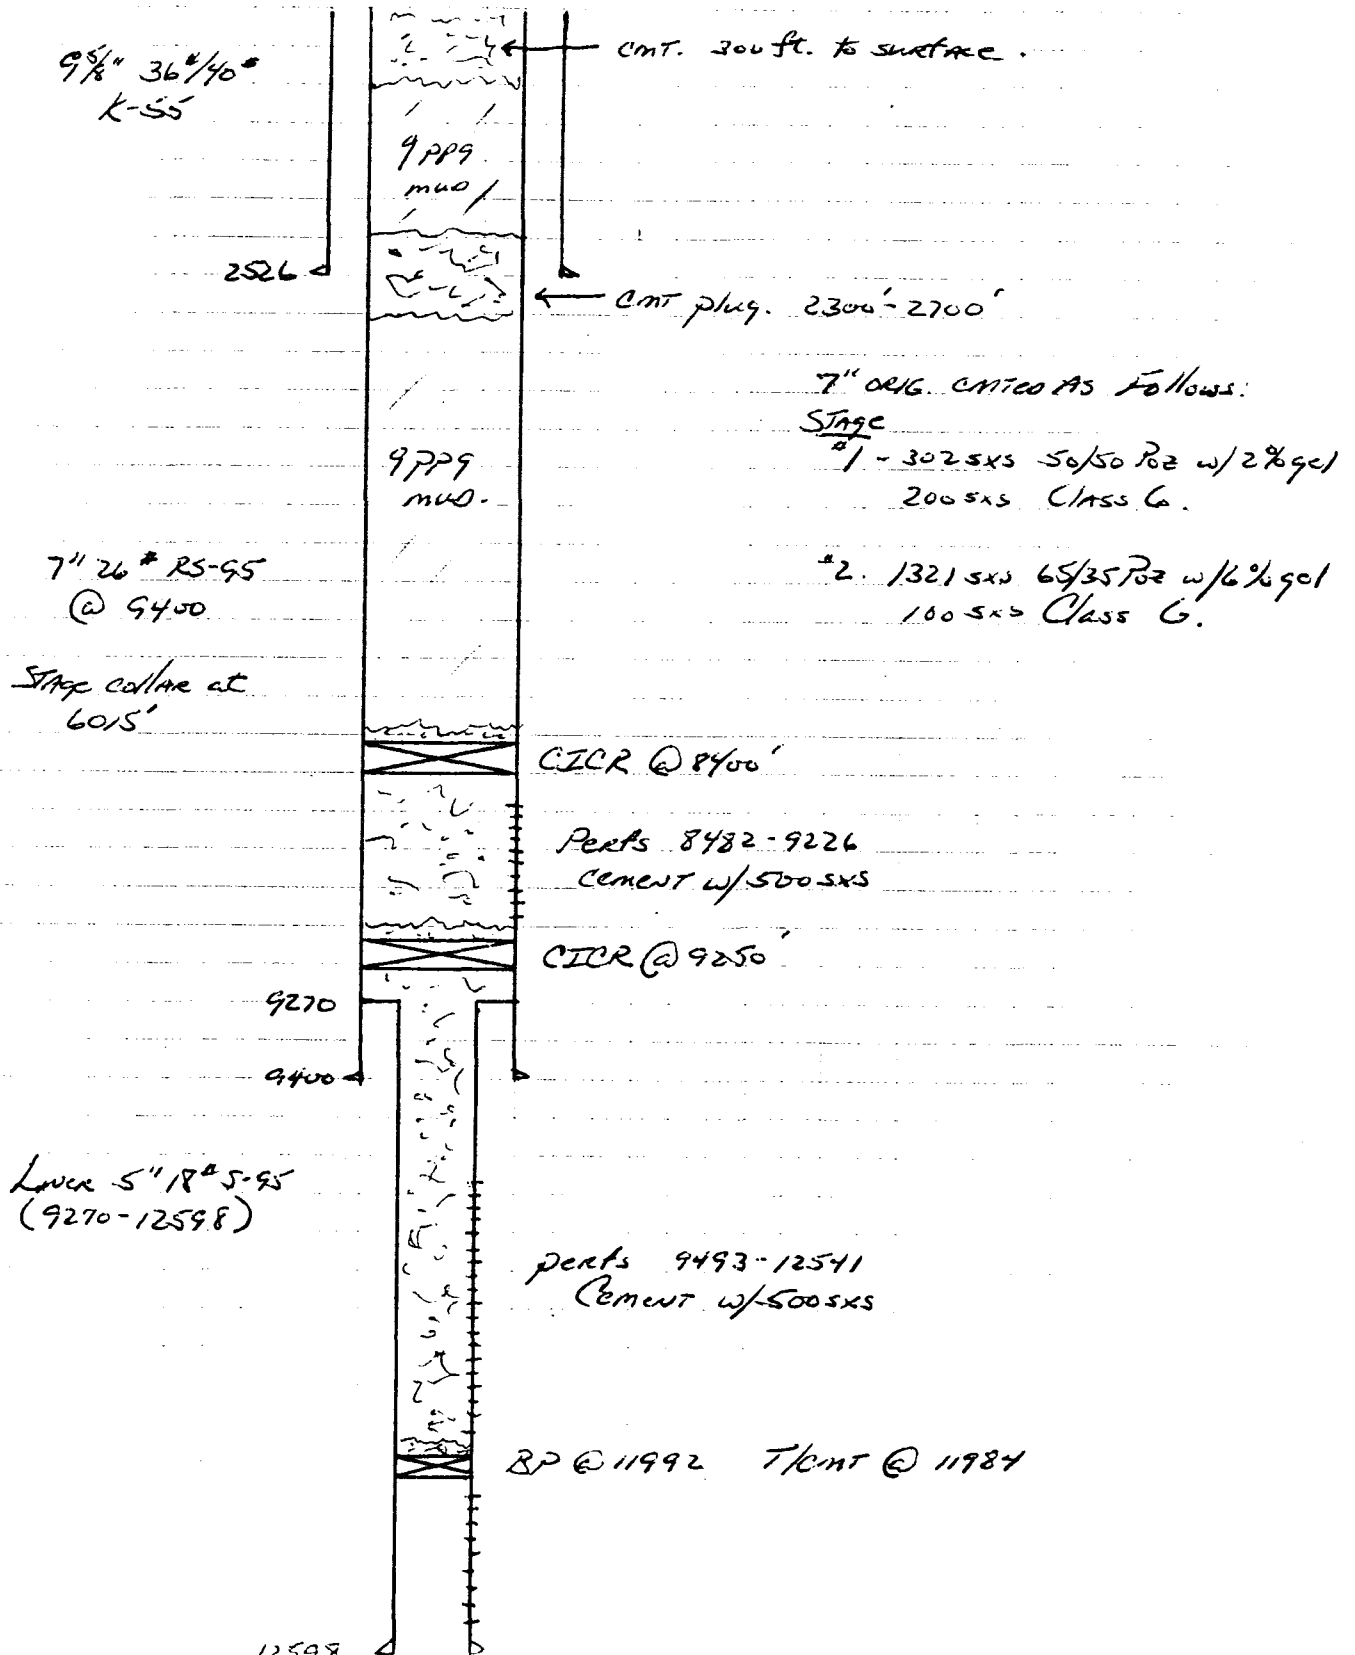 CMT. 300 ft. to surface.
9 5/8" 36#/40#
K-55
9 ppg
mud
2526
CMT plug. 2300'-2700'
7" ORIG. CMTED AS Follows:
STAGE
#1 - 302 sxs 50/50 Poz w/2% gel
200 sxs Class G.
9 ppg
mud.
7" 26# RS-95
@ 9400
#2. 1321 sxs 65/35 Poz w/6% gel
100 sxs Class G.
STAGE collar at
6015'
CICR @ 8400'
Perfs 8482-9226
Cement w/500 sxs
CICR @ 9250'
9270
9400
Liner 5" 18# S-95
(9270-12598)
perfs 9493-12541
Cement w/500 sxs
BP @ 11992 T/CMT @ 11984
12598